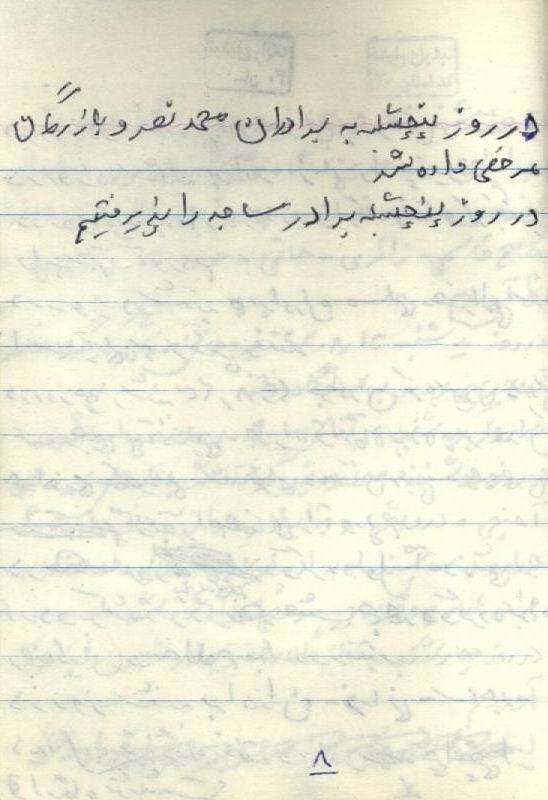 در روز پنچشبله به برادران محمد نصر و بازرگان
مرخصی داده شد
در روز پنچشبله برادر ساجه را پذیرفتیم
۸